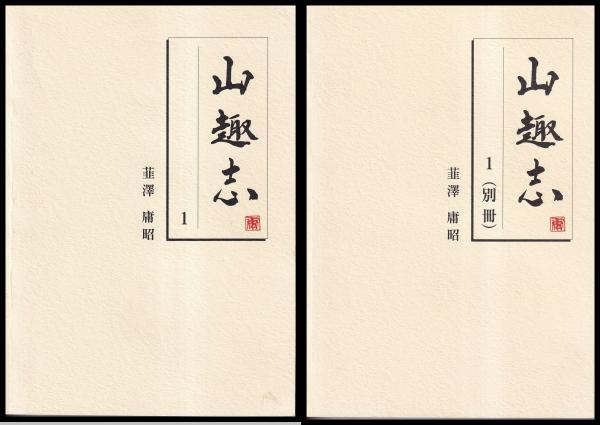 山趣志
1
韮澤 庸昭
山趣志
1(別冊)
韮澤 庸昭